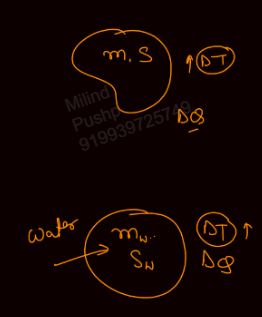 m, S
↑ DT
DQ
Milind
Pushp
919939725749
Water
mw..
Sw
DT ↑
DQ